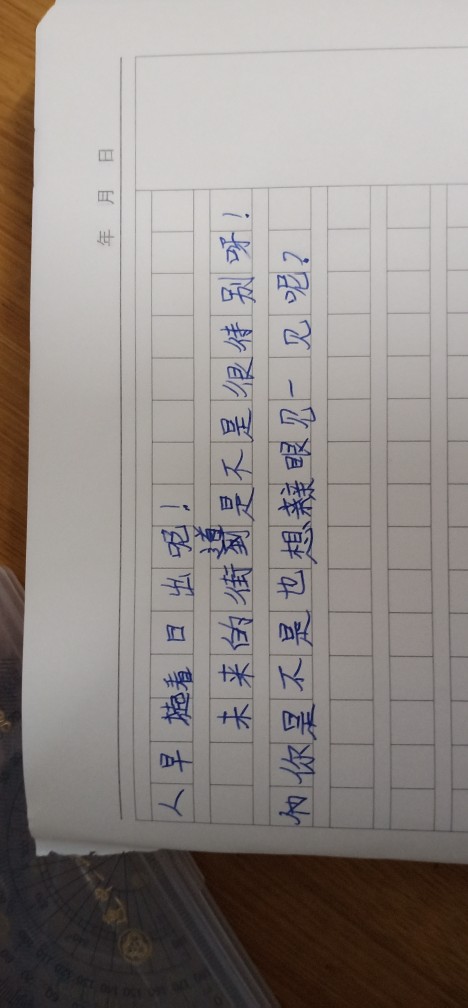 年 月 日
人早看日出呢!
未来的街道是不是很特别呀!
的你是不是也想亲眼见一见呢?